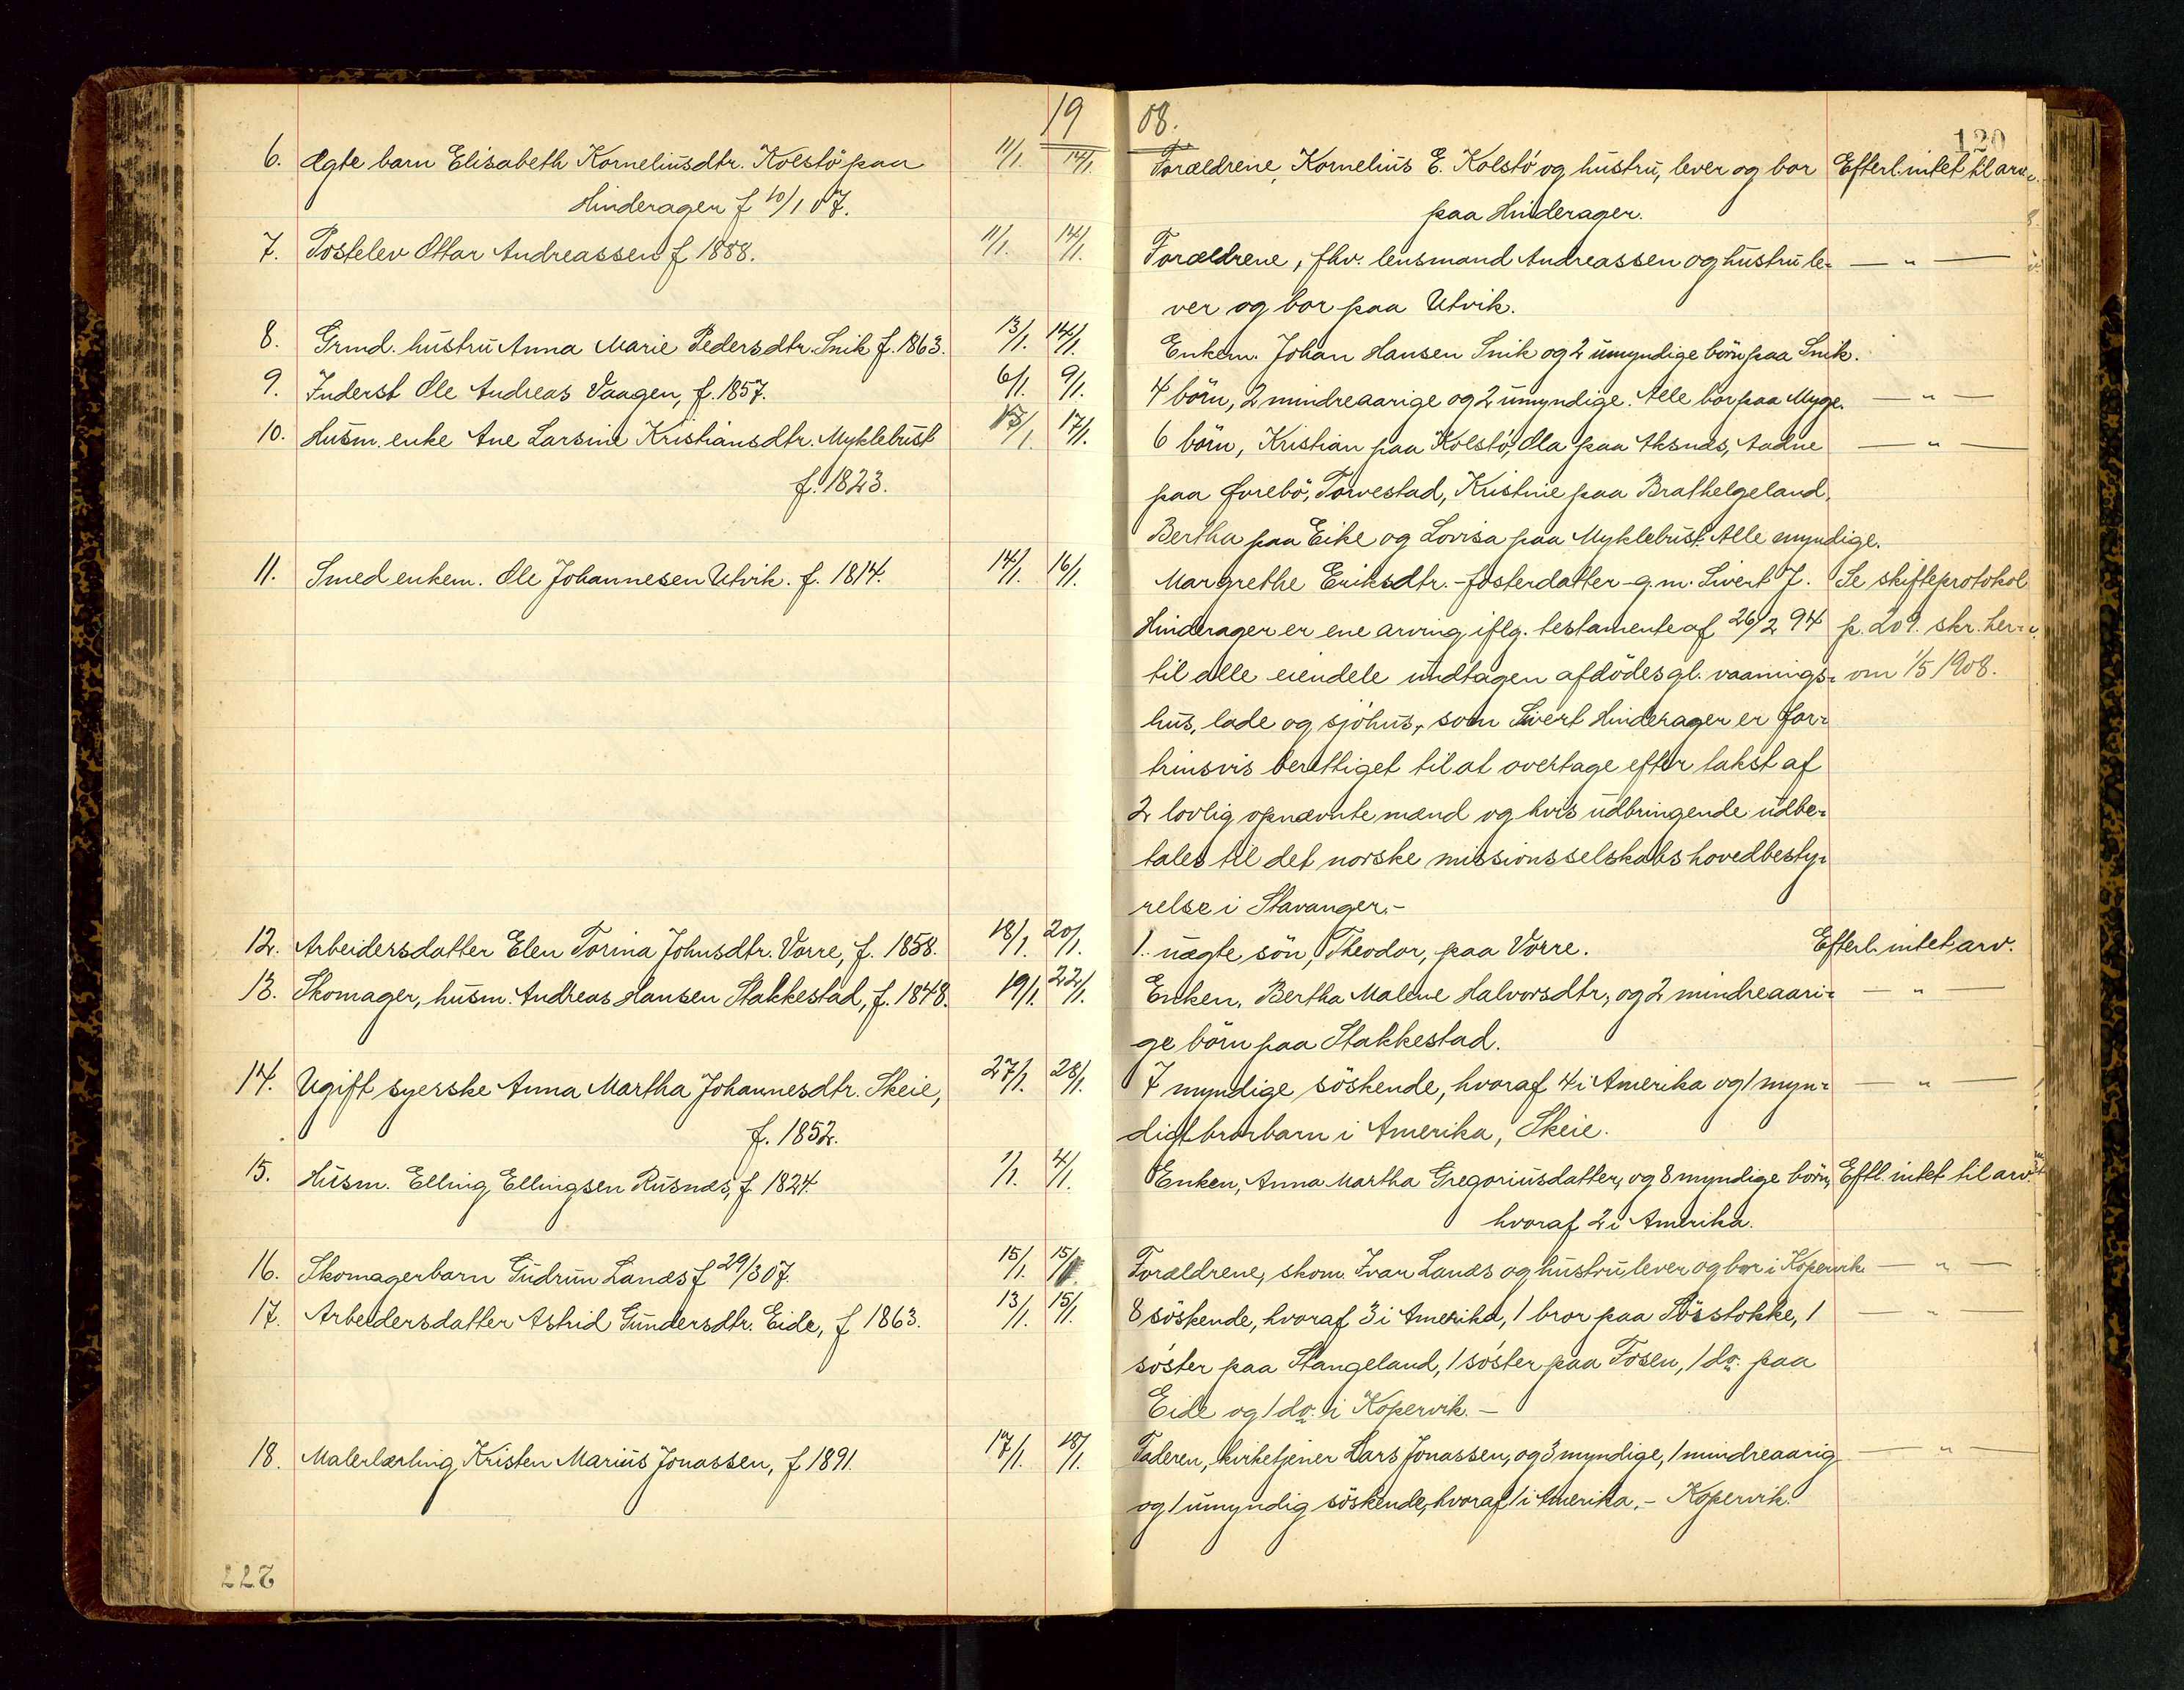 1908.
120
6. Ægte barn Elisabeth Korneliusdtr. Kolstö paa 11/1. 14/1. Forældrene, Kornelius E. Kolstö og hustru, lever og bor Efterl. intet til arv.
Hinderager f 10/1 07. paa Hinderager.
7. Postelev Ottar Andreassen f 1888. 11/1. 14/1. Forældrene, fhv. lensmand Andreassen og hustru le- — " —
ver og bor paa Utvik.
8. Grmd. hustru Anna Marie Pedersdtr. Snik f. 1863. 13/1. 14/1. Enkem. Johan Hansen Snik og 2 umyndige börn paa Snik.
9. Inderst Ole Andreas Vaagen, f. 1857. 6/1. 9/1. 4 börn, 2 mindreaarige og 2 umyndige. Alle bor paa Myge. — " —
10. Husm. enke Ane Larsine Kristiansdtr. Myklebust 13/1. 17/1. 6 börn, Kristian paa Kolstö, Ola paa Aksnæs, Aadne — " —
f. 1823. paaÖrebö, Torvestad, Kristine paa Brathelgeland,
Bertha paa Eike og Lovisa paa Myklebust. Alle myndige.
11. Smed enkem. Ole Johannesen Utvik. f. 1814. 14/1. 16/1. Margrethe Eriksdtr. - fosterdatter - g.m. Sivert J. Se skifteprotokol
Hinderager er ene arving iflg. testamente af 26/2 94 p. 209. skr. her-
til alle eiendele undtagen afdödes gl. vaanings- om 1/5 1908.
hus, lade og sjöhus, som Sivert Hinderager er for-
trinsvis berettiget til at overtage efter takst af
2 lovlig opnævnte mænd og hvis udbringende udbe-
tales til det norske missionsselskabs hovedbesty-
relse i Stavanger. -
12. Arbeidersdatter Elen Torina Johnsdtr. Vorre, f. 1858. 18/1. 20/1. 1 uægte sön, Theodor, paa Vorre. Efterl. intet arv.
13. Skomager, husm. Andreas Hansen Stakkestad, f. 1848. 19/1. 22/1. Enken, Bertha Malene Halvorsdtr, og 2 mindreaari- — " —
ge börn paa Stakkestad.
14. Ugift syerske Anna Martha Johannesdtr. Skeie, 27/1. 28/1. 7 myndige söskende, hvoraf 4 i Amerika og 1 myn- — " —
f. 1852. digt brorbarn i Amerika, Skeie.
15. Husm. Elling Ellingsen Rusnæs, f. 1824. 1/1. 4/1. Enken, Anna Martha Gregoriusdatter, og 8 myndige börn, Eftl. intet til arv.
hvoraf 2 i Amerika.
16. Skomagerbarn Gudrun Landes f 29/3 07. 15/1. 15/1. Forældrene, skom. Ivar Landes og hustru lever og bor i Kopervik — " —
17. Arbeidersdatter Astrid Gundersdtr. Eide, f 1863. 13/1. 15/1. 8 söskende, hvoraf 3 i Amerika, 1 bror paa Sösstokke, 1 — " —
söster paa Stangeland, 1 söster paa Fosen, 1 do. paa
Eide og 1 do. i Kopervik. -
18. Malerlærling Kristen Marius Jonassen, f 1891. 17/1. 18/1. Faderen, kirketjener Lars Jonassen, og 3 myndige, 1 mindreaarig — " —
og 1 umyndig söskende, hvoraf 1 i Amerika. - Kopervik.
227